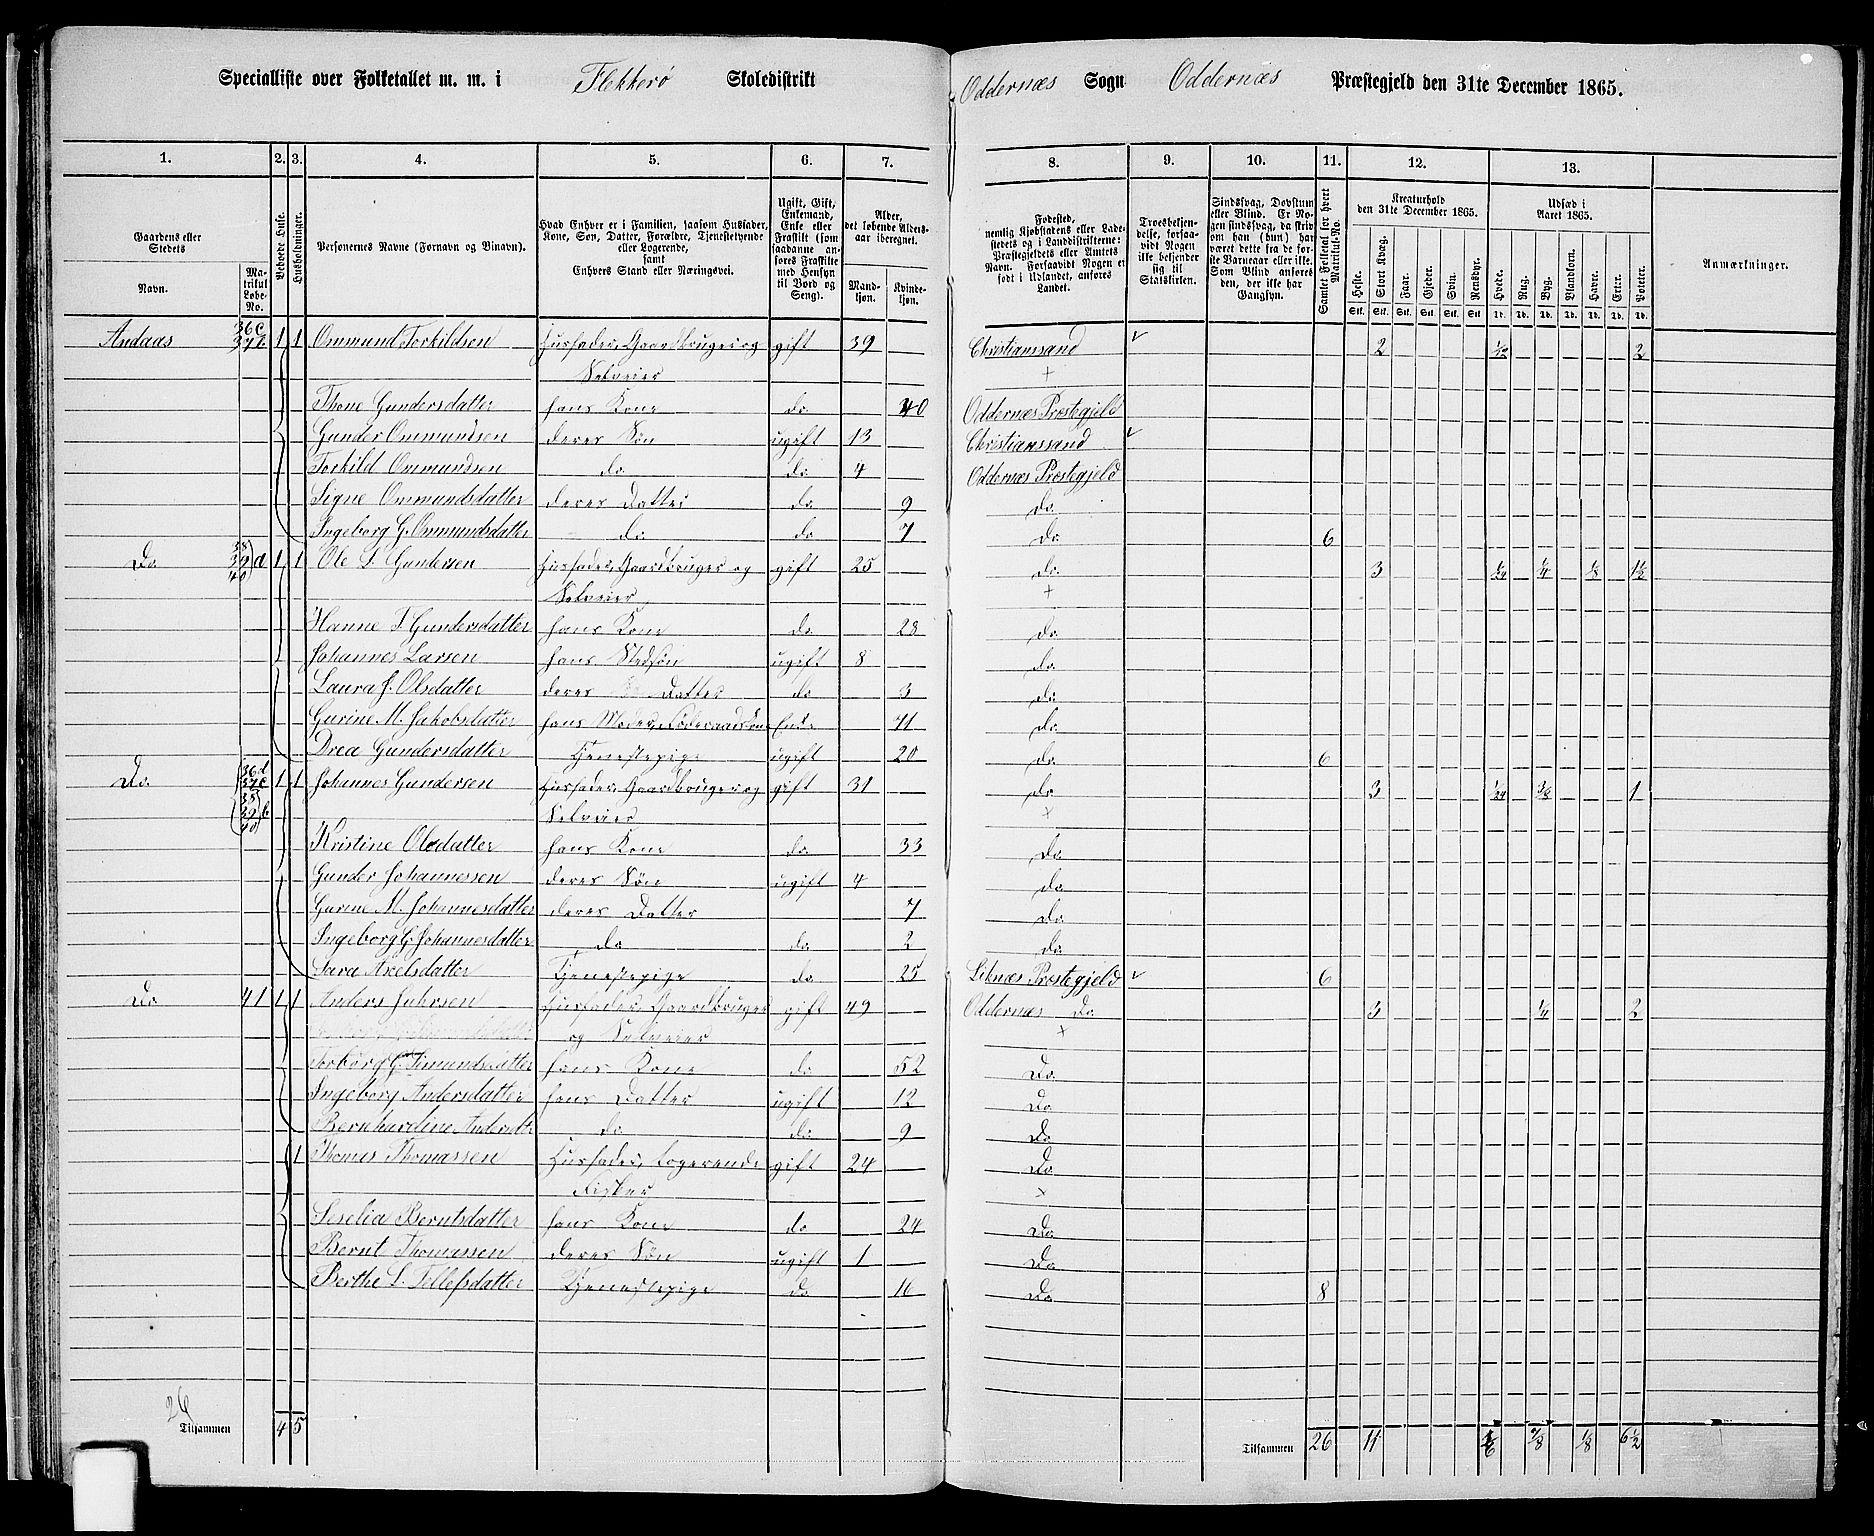 Specialliste over Folketallet m. m. i Flekkerø Skoledistrikt Oddernæs Sogn Oddernæs Præstegjeld den 31te December 1865.
1. 2. 3. 4. 5. 6. 7. 8. 9. 10. 11. 12. 13.
Gaardens eller Stedets Navn. Matrikul Løbe-No.
Beboede Huse.
Husholdninger.
Personernes Navne (Fornavn og Binavn).
Hvad Enhver er i Familien, saasom Husfader, Kone, Søn, Datter, Forældre, Tjenestetyende eller Logerende, samt Enhvers Stand eller Næringsvei.
Ugift, Gift, Enkemand, Enke eller Fraskilt (som saadanne anføres Fraskilte med Hensyn til Bord og Seng).
Alder, det løbende Aldersaar iberegnet. Mandkjøn. Kvindekjøn.
Fødested, nemlig Kjøbstadens eller Ladestedets og i Landdistrikterne: Præstegjeldets eller Amtets Navn. Forsaavidt Nogen er født i Udlandet, anføres Landet.
Troesbekjendelse, forsaavidt Nogen ikke bekjender sig til Statskirken.
Sindssvag, Døvstum eller Blind. Er Nogen sindssvag, da skrives om han (hun) har været dette fra de første Barneaar eller ikke. Som Blind anføres den, der ikke har Gangsyn.
Samlet Folketal for hvert Matrikul-No.
Kreaturhold den 31te December 1865. Heste. Stort Kvæg. Faar. Gjeder. Svin. Rensdyr.
Udsæd i Aaret 1865. Hvede. Rug. Byg. Blandkorn. Havre. Erter. Poteter.
Anmærkninger.
Stk. Stk. Stk. Stk. Stk. Stk. Td. Td. Td. Td. Td. Td. Td.
Andaas 36c 37b 1 1 Ommund Torkildsen Husfader, Gaardbruger og gift 39 Christianssand 2 1/12 2
Selveier +
Thone Gundersdatter hans Kone do 40 Oddernæs Prestegjeld
Gunder Ommundsen deres Søn ugift 13 Christianssand
Torkild Ommundsen do do 4 Oddernæs Prestegjeld
Signe Ommundsdatter deres Datter do 9 do
Ingeborg G. Ommundsdatter do do 7 do 6
Do 38 39 40 a 1 1 Ole S. Gundersen Husfader, Gaardbruger og gift 25 do 3 1/24 1/4 1/8 1 1/2
Selveier +
Hanne T. Gundersdatter hans Kone do 28 do
Johannes Larsen hans Stedsøn ugift 8 do
Laura J. Olsdatter deres Datter do 3 do
Gurine M. Jakobsdatter hans Moder, Føderaadskone Enke 71 do
Drea Gundersdatter Tjenestepige ugift 20 do 6
Do 36d 37c 38 39 40 b 1 1 Johannes Gundersen Husfader, Gaardbruger og gift 31 do 3 1/24 3/8 1
Selveier +
Kristine Olsdatter hans Kone do 33 do
Gunder Johannessen deres Søn ugift 4 do
Gurine M. Johannesdatter deres Datter 7 do
Ingeborg G. Johannesdatter do do 2 do
Sara Axelsdatter Tjenestepige do 25 Liknæs Prestegjeld 6
Do 41 1 1 Anders Juhrsen Husfader, Gaardbruger gift 49 Oddernæs Do 3 1/4 2
og Selveier +
Torborg G. Simundsdatter hans Kone do 52 Do
Ingeborg Andersdatter hans Datter ugift 12 Do
Bernhardine Andersdtr do do 9 Do
1 Thomas Thomassen Husfader, Logerende gift 24 Do
Fisker +
Seselia Berntsdatter hans Kone do 24 Do
Bernt Thomassen deres Søn ugift 1 Do
Berthe S. Tellefsdatter Tjenestepige do 16 Do 8
26
Tilsammen 4 5 Tilsammen 26 11 1/6 7/8 1/8 6 1/2